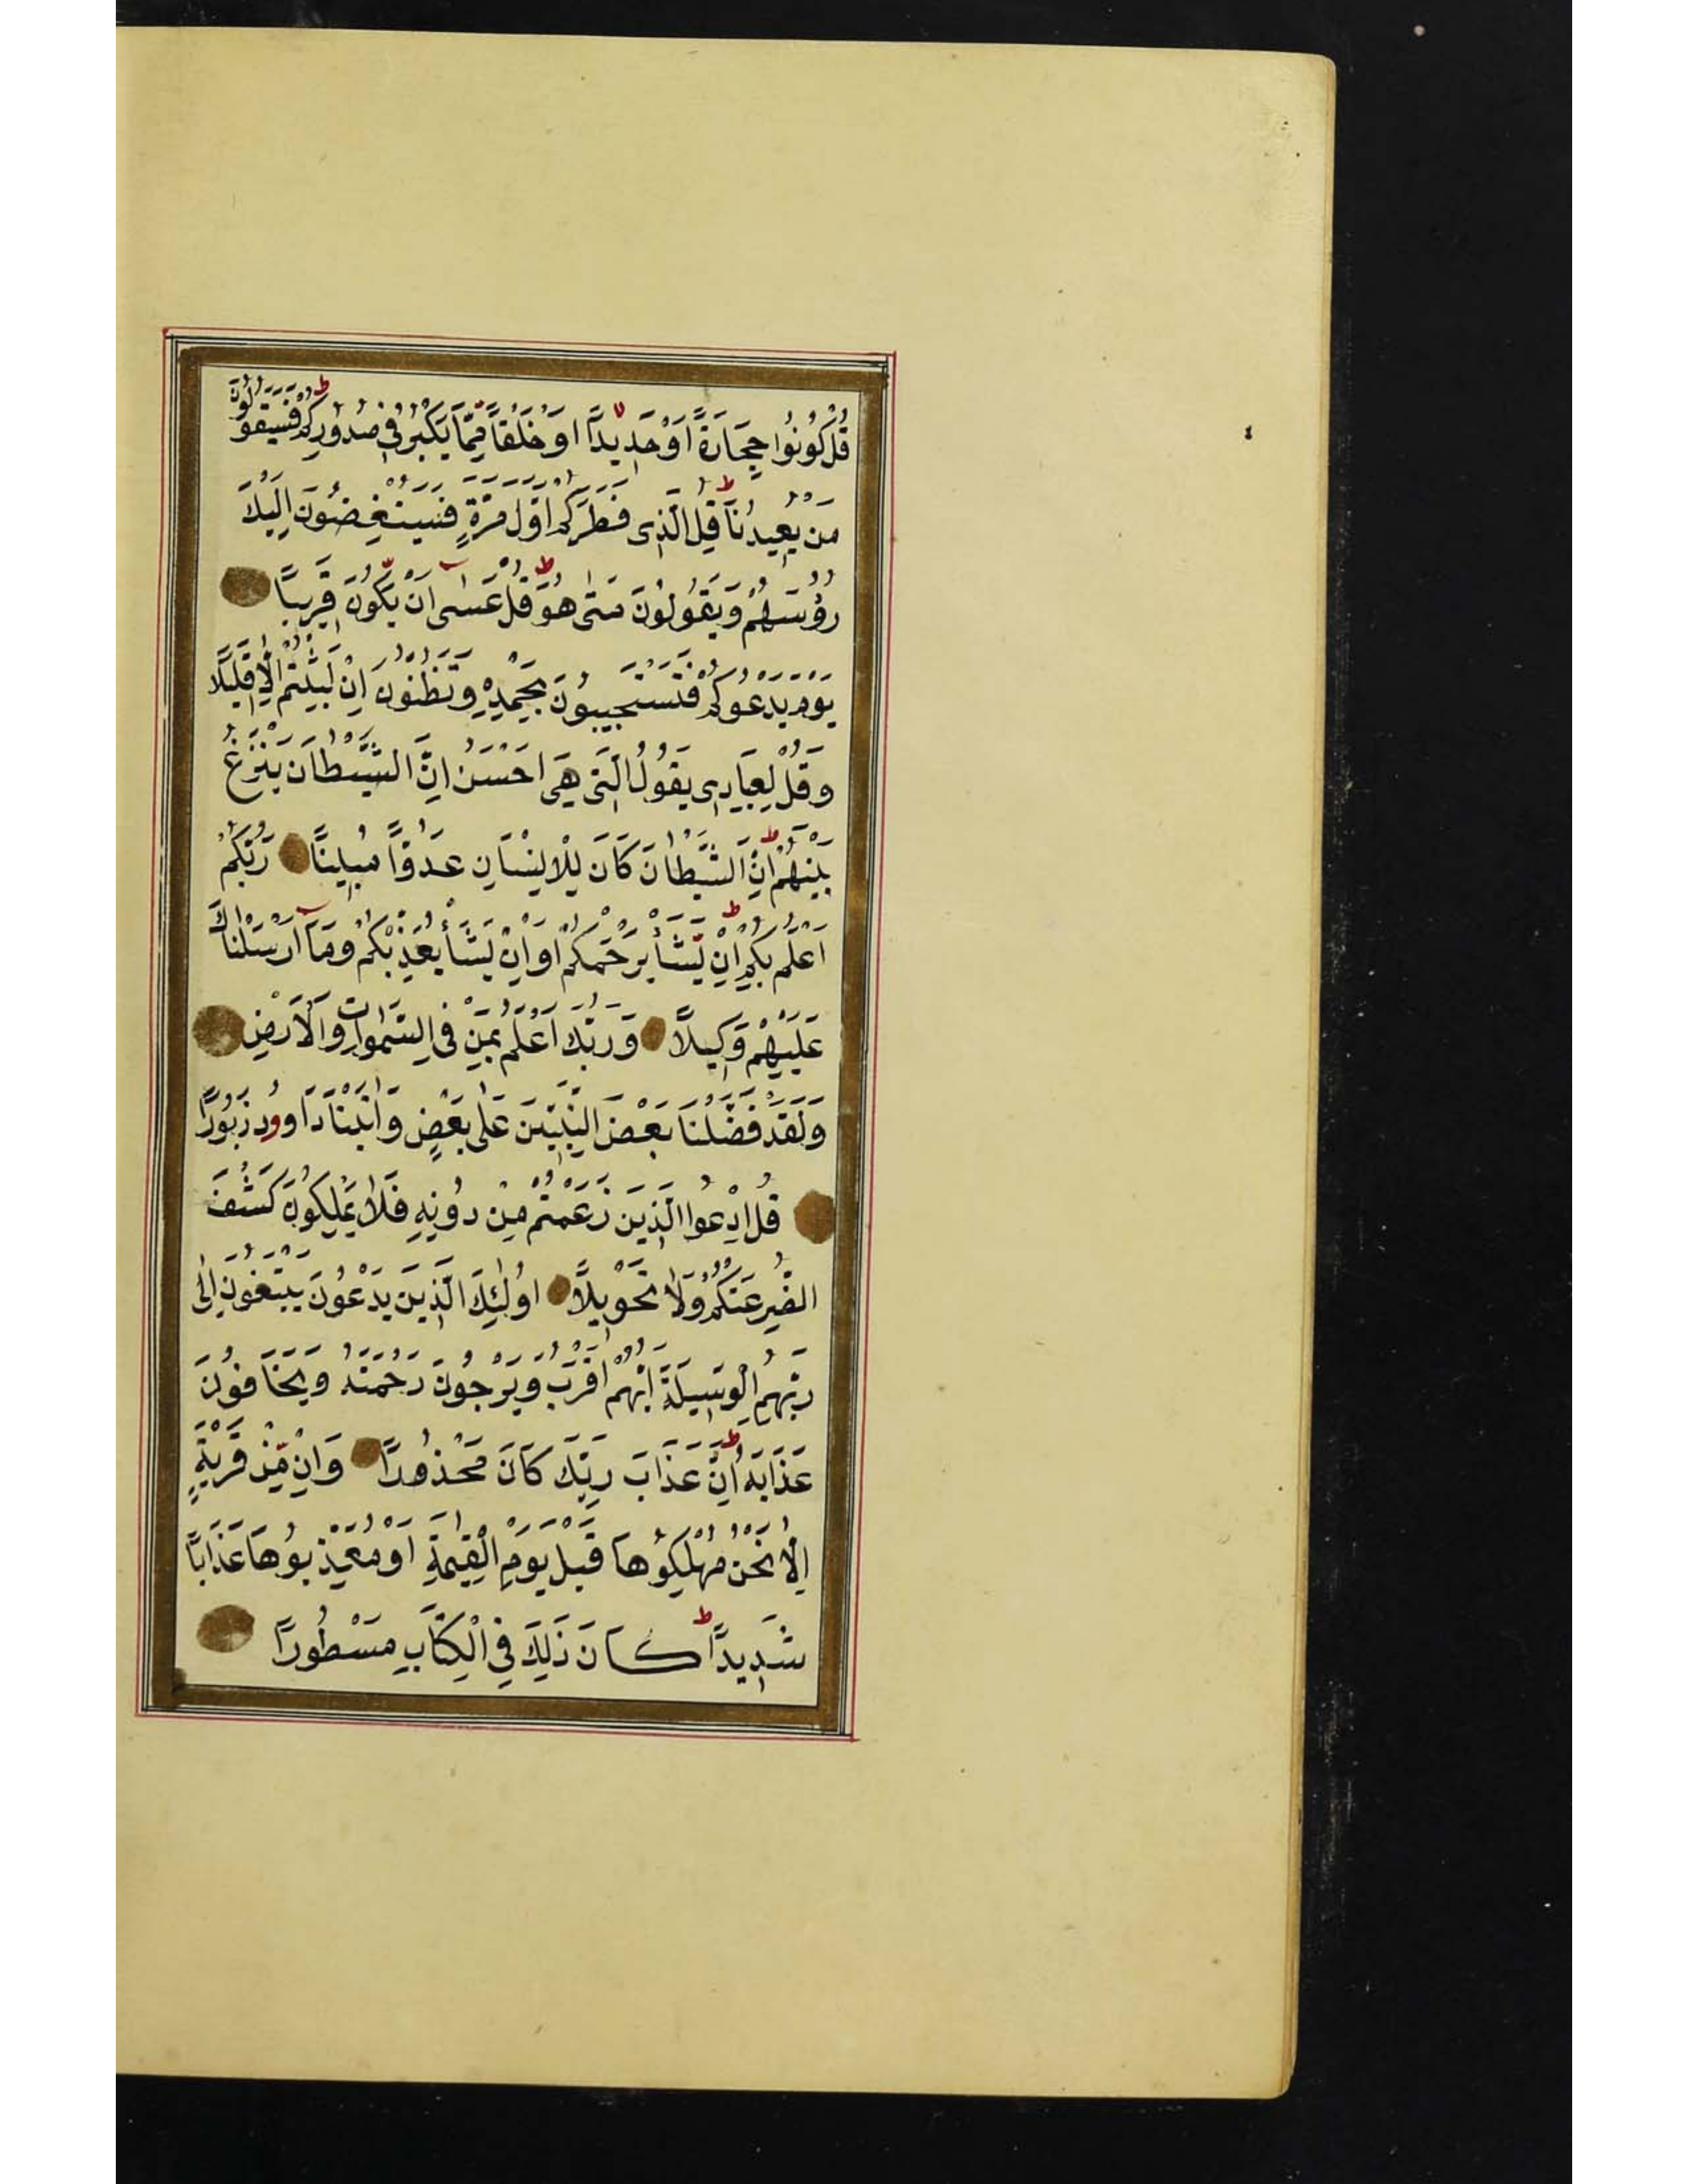 قُلْ كُونُوا حِجَارَةً اَوْ حَدِيدًا اَوْ خَلْقًا مِّمَّا يَكْبُرُ فِي صُدُورِكُمْ فَسَيَقُولُونَ
مَنْ يُعِيدُنَا قُلِ الَّذِى فَطَرَكُمْ اَوَّلَ مَرَّةٍ فَسَيُنْغِضُونَ اِلَيْكَ
رُؤُسَهُمْ وَيَقُولُونَ مَتٰى هُوَ قُلْ عَسٰى اَنْ يَّكُونَ قَرِيبًا
يَوْمَ يَدْعُوكُمْ فَتَسْتَجِيبُونَ بِحَمْدِهِ وَتَظُنُّونَ اِنْ لَبِثْتُمْ اِلَّا قَلِيلًا
وَقُلْ لِعِبَادِى يَقُولُ الَّتِى هِىَ اَحْسَنُ اِنَّ الشَّيْطَانَ يَنْزَغُ
بَيْنَهُمْ اِنَّ الشَّيْطَانَ كَانَ لِلْاِنْسَانِ عَدُوًّا مُبِينًا رَبُّكُمْ
اَعْلَمُ بِكُمْ اِنْ يَّشَأْ يَرْحَمْكُمْ اَوْ اِنْ يَشَأْ يُعَذِّبْكُمْ وَمَا اَرْسَلْنَاكَ
عَلَيْهِمْ وَكِيلًا وَرَبُّكَ اَعْلَمُ بِمَنْ فِى السَّمٰوَاتِ وَالْاَرْضِ
وَلَقَدْ فَضَّلْنَا بَعْضَ النَّبِيِّينَ عَلٰى بَعْضٍ وَاٰتَيْنَا دَاوُودَ زَبُورًا
قُلِ ادْعُوا الَّذِينَ زَعَمْتُمْ مِنْ دُونِهِ فَلَا يَمْلِكُونَ كَشْفَ
الضُّرِّ عَنْكُمْ وَلَا تَحْوِيلًا اُولٰئِكَ الَّذِينَ يَدْعُونَ يَبْتَغُونَ اِلٰى
رَبِّهِمُ الْوَسِيلَةَ اَيُّهُمْ اَقْرَبُ وَيَرْجُونَ رَحْمَتَهُ وَيَخَافُونَ
عَذَابَهُ اِنَّ عَذَابَ رَبِّكَ كَانَ مَحْذُورًا وَاِنْ مِّنْ قَرْيَةٍ
اِلَّا نَحْنُ مُهْلِكُوهَا قَبْلَ يَوْمِ الْقِيٰمَةِ اَوْ مُعَذِّبُوهَا عَذَابًا
شَدِيدًا كَانَ ذٰلِكَ فِي الْكِتَابِ مَسْطُورًا